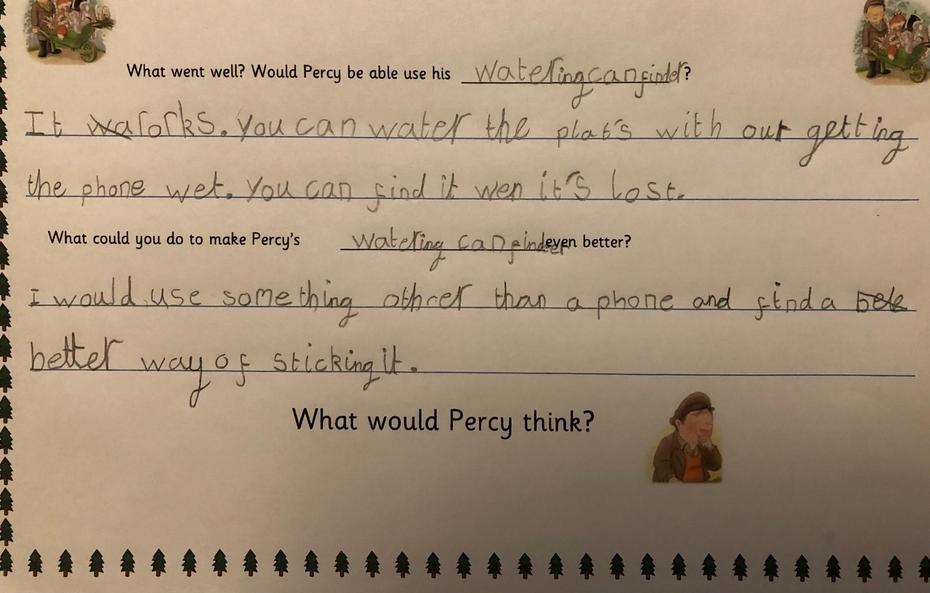 What went well? Would Percy be able use his wateringcanfinder?
It works. You can water the plat's with out getting
the phone wet. You can find it wen it's lost.
What could you do to make Percy's watering canfinder even better?
I would use something othcer than a phone and find a bete
better way of sticking it.
What would Percy think?